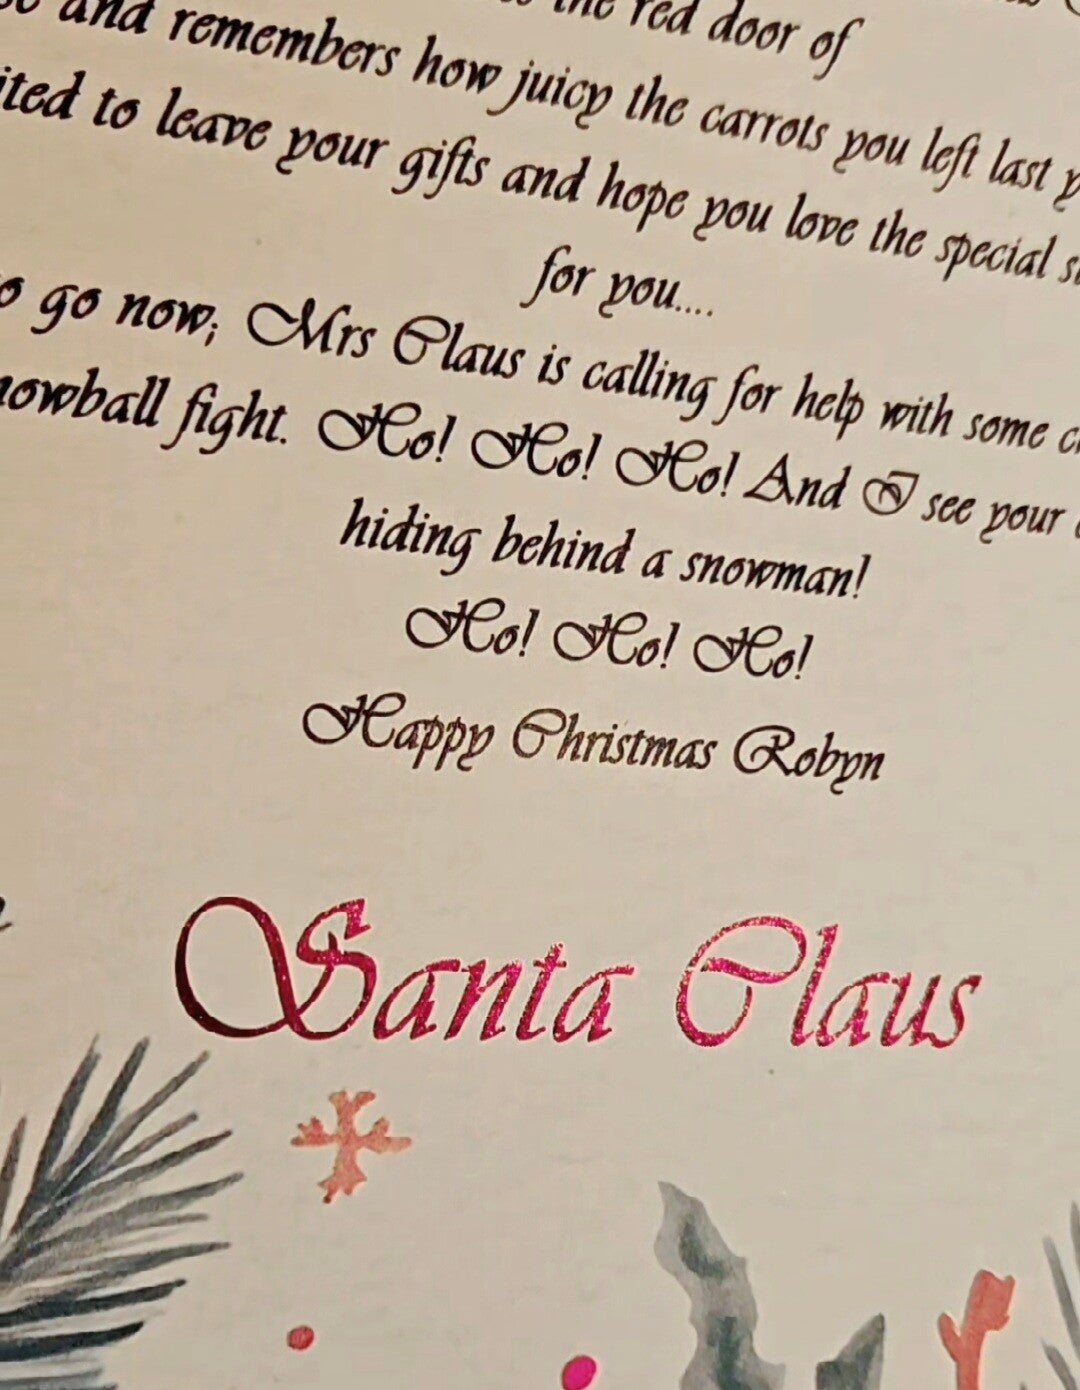 the red door of
and remembers how juicy the carrots you left last
to leave your gifts and hope you love the special
for you....
go now; Mrs Claus is calling for help with some
fight. Ho! Ho! Ho! And I see your
hiding behind a snowman!
Ho! Ho! Ho!
Happy Christmas Robyn
Santa Claus